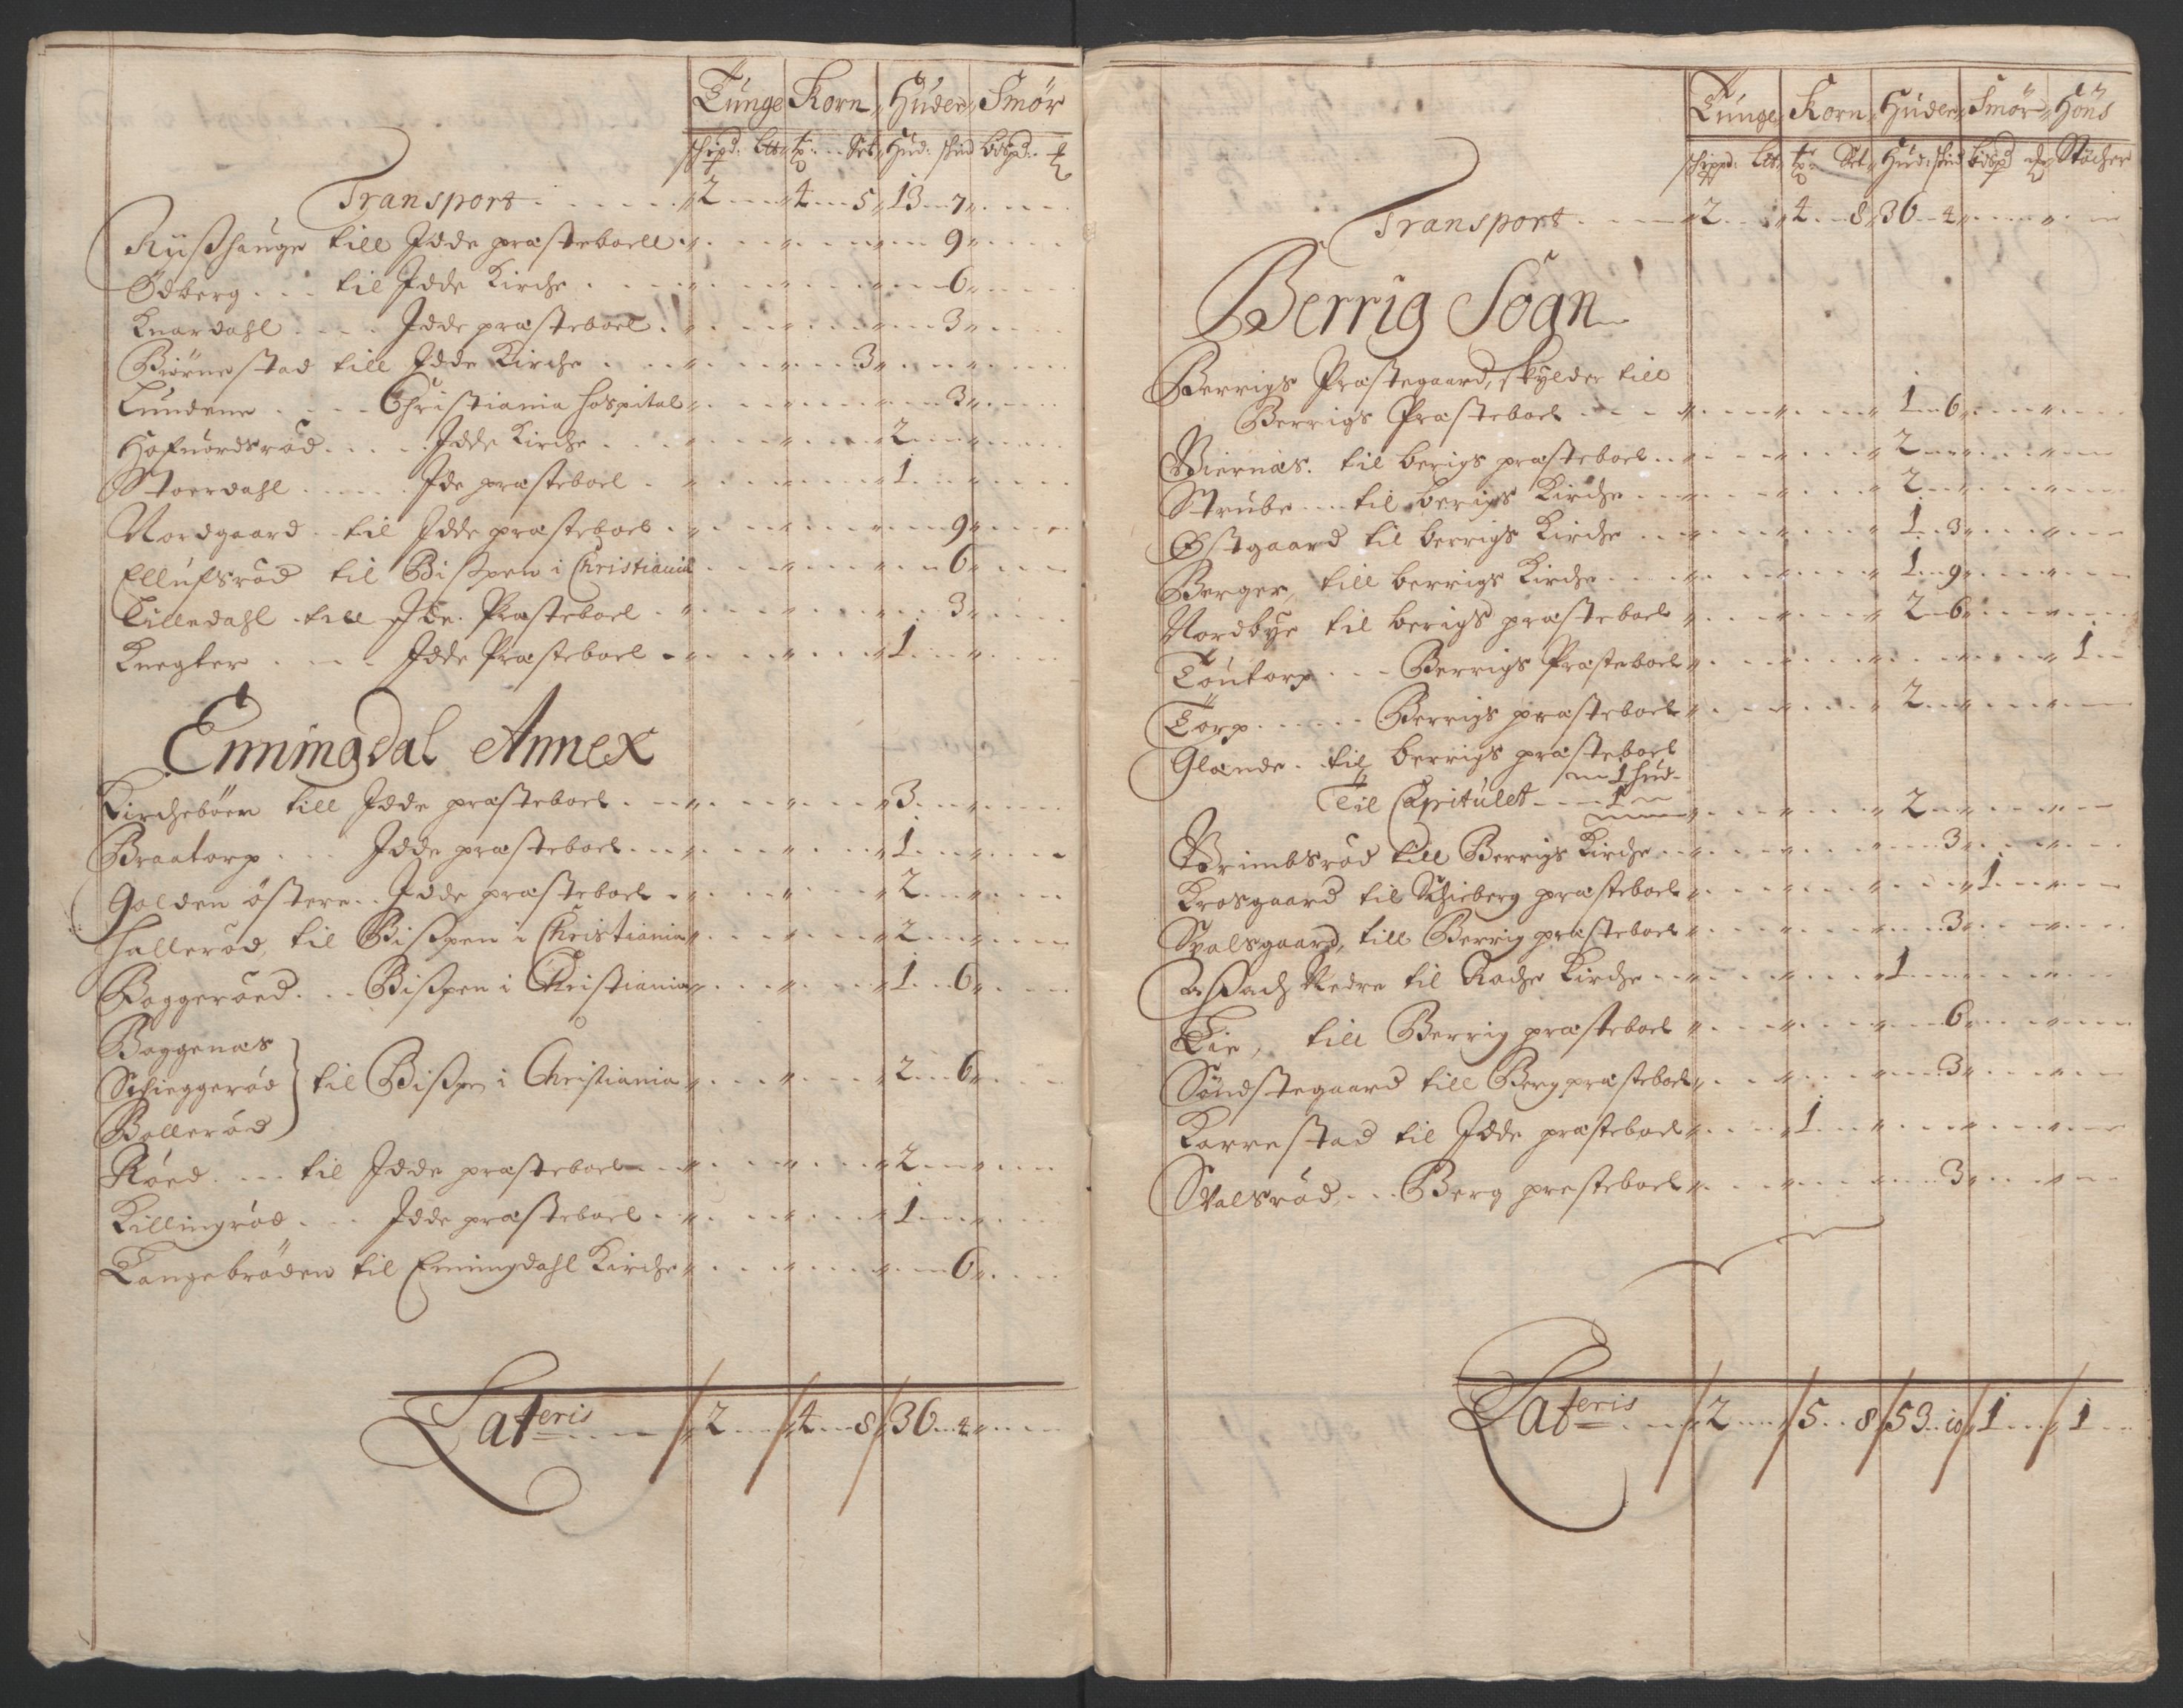 Tunge Korn Huder Smør
schipd: Ltt tr: Set Hud: skind bdspd:
Transport 2 4 5 13 7
Riisshauge till Idde præsteboell 9
Ødberg til Idde Kirche 6
Knardahl Idde præsteboel 3
Biørnestad till Idde Kirche 3
Lundene Christiania hospital 3
Hofuordsrød Idde Kirche 2
Stoerdahl Ide præsteboel 1
Nordgaard til Idde præsteboel 9
Ellufsrød til Bispen i Christiania 6
Lilledahl till Ide Præsteboel 3
Knegter Idde Præsteboel 1
Enningdal Annex
Kirchebøen till Idde præsteboel 3
Braatorp Idde præsteboel 1
Holden østere Idde præsteboel 2
Hallerød, til Bispen i Christiania 2
Baggerøed Bispen i Christiania 1 6
Baggenæs
Schieggerød til Bispen i Christiania 2 6
Bollerød
Røed til Idde præsteboel 2
Killingrød Idde præsteboel 1
Tangebrøden til Enningdahl Kirche 6
Lateris 2 4 8 36 4
Tunge Korn Huder Smør Høns
schippd: Ltt tr Set Hud: skind bdspd Støcher
Transport 2 4 8 36 4
Berrig Sogn
Berrigs Præstegaard, skylder till
Berrigs Præsteboel 1 6
Biernæs til berigs præsteboel 2
Strube til berigs Kirche 2
Østgaard til berrigs Kirche 1 3
Berger, till berrigs Kirche 1 9
Nordbye til berigs præsteboel 2 6
Toutorp Berrigs Præsteboel 1
Torp Berrigs præsteboel 2
Glænde til berrigs præsteboel
1 hud
Til Capitulet 1
2
Brimbsrød till Berrigs Kirche 3
Krosgaard til Schieberg præsteboel 1
Svalsgaard, till Berrig præsteboel 3
Aspach Nedre til Rache Kirche 1
Lie, till Berrig præsteboel 6
Søndstegaard till Berg præsteboel 3
Karrestad til Idde præsteboel 1
Svalsrød Berg presteboel 3
Lateris 2 5 8 53 10 1 1